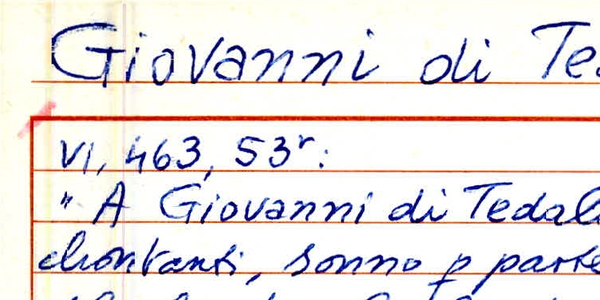 Giovanni di Te
VI, 463, 53r:
" A Giovanni di Tedal
chontanti, sonno p parte